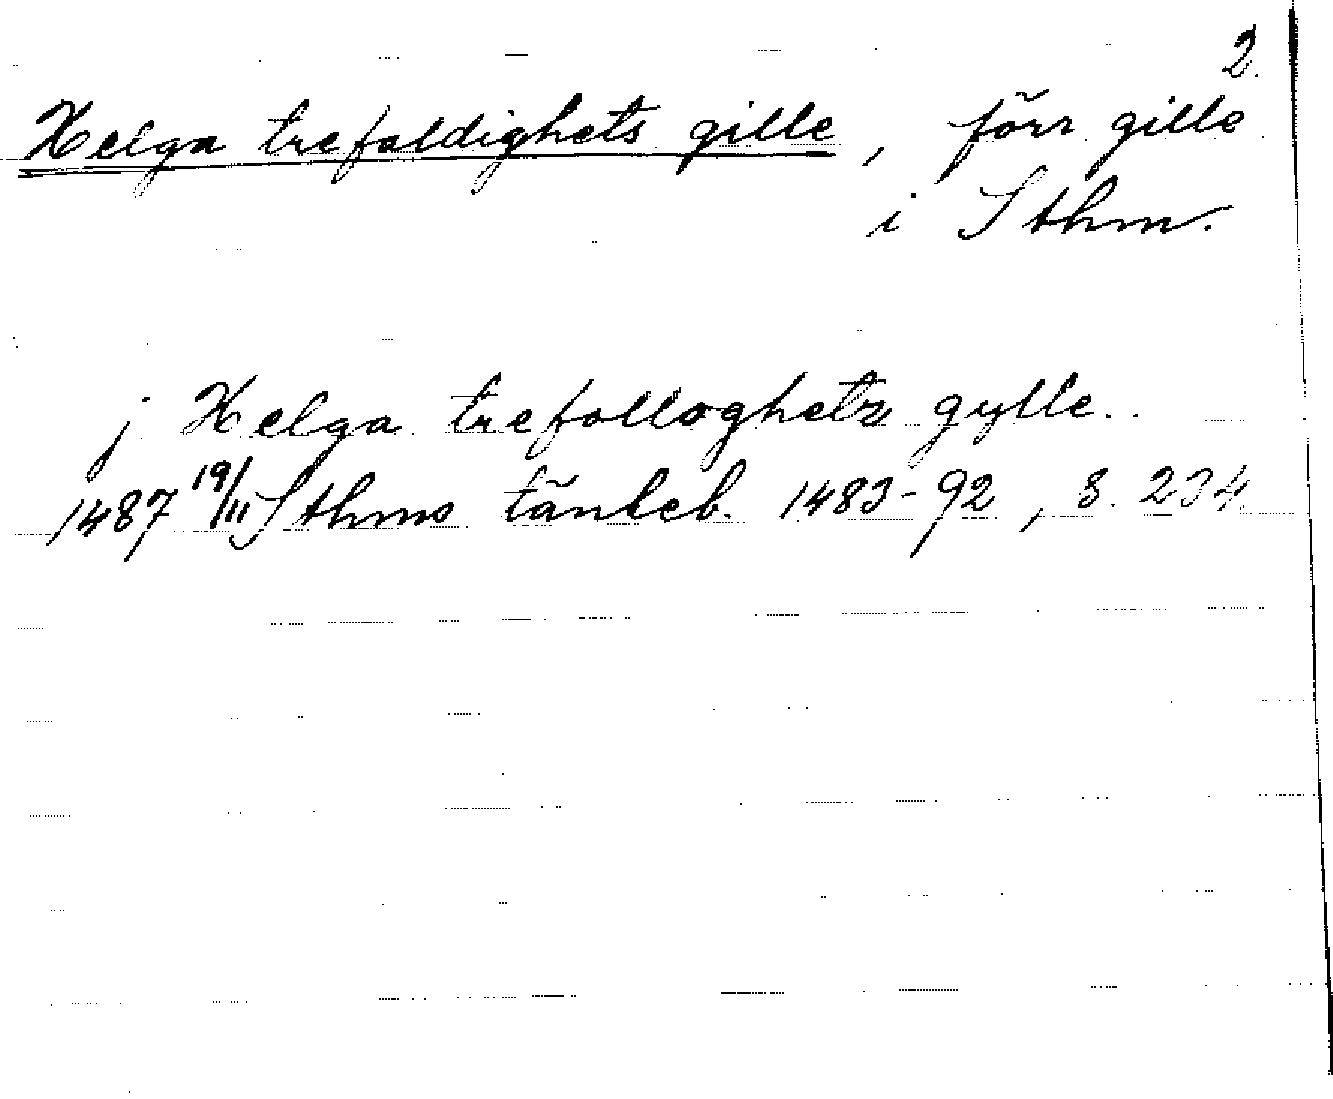 2.
Helga trefaldighets gille, förr gille
i Sthm.
j Helga trefolloghetz gylle..
1487 19/11 Sthms tänkeb. 1483-92, s. 234.